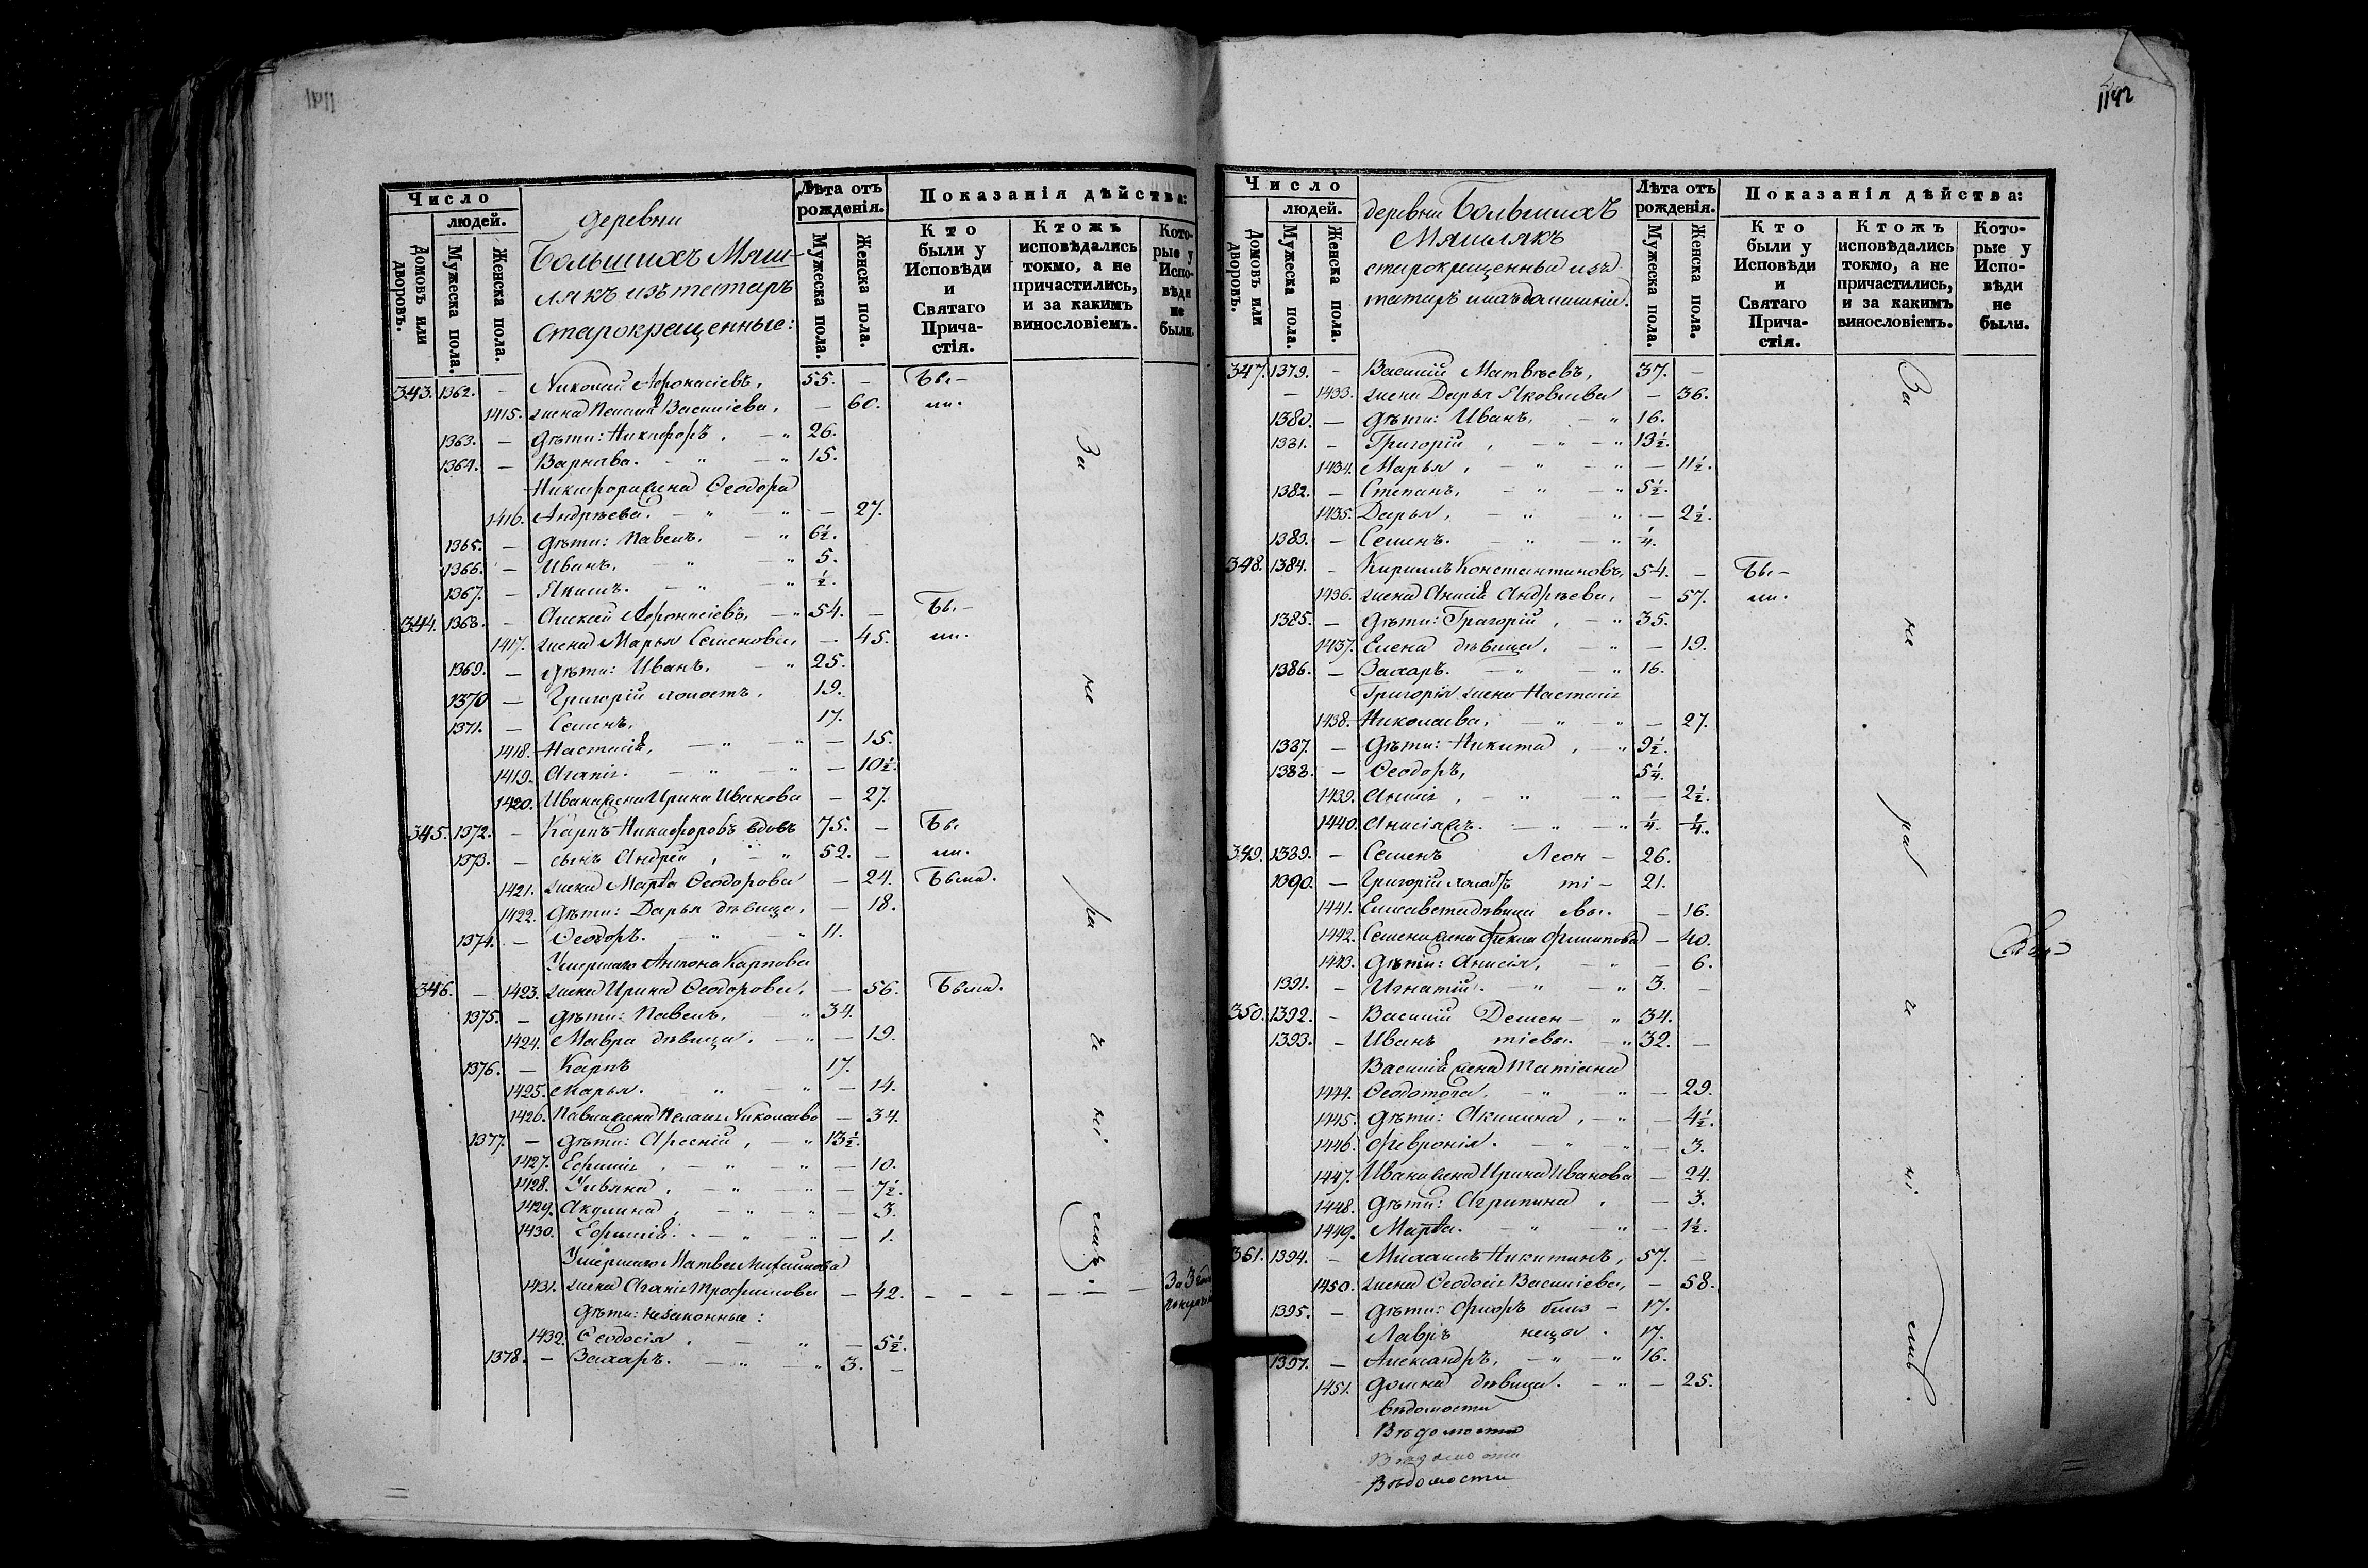 1142
Число
людей.
Домовъ или дворовъ.
Мужеска пола.
Женска пола.
деревни
Большихъ Мяш-
лякъ изъ татаръ
старокрещенные:
Лѣта отъ рожденія.
Мужеска пола.
Женска пола.
Показанія дѣйства:
Кто были у Исповѣди и Святаго Прича-стія.
Ктожъ исповѣдались токмо, а не причастились, и за какимъ винословіемъ.
Кото-рые у Испо-вѣди не были.
343. 1362. – Николай Афонасіевъ, 55. – Бы-
1415. жена Пелагія Васильева, – 60. ли.
1363. – дѣти: Никифоръ, – „ 26.
1364. – Варнава. – „ – „ 15.
Никифора жена Ѳеодора
1416. Андрѣева. – „ – „ – 27.
1365. – дѣти: Павелъ, – „ 6½.
1366. – Иванъ, – „ – „ 5.
1367. – Якимъ. – „ – „ ½.
344. 1368. – Алексей Афонасіевъ, – „ 54. – Бы-
1417. жена Марья Семенова, – 45. ли.
1369. – дѣти: Иванъ, – „ 25.
1370 – Григорій холостъ. 19.
1371. – Семенъ, 17.
1418. Настасія, – „ – „ – 15.
1419. Агапія. – „ – „ – 10½.
1420. Ивана жена Ирина Иванова – 27.
345. 1372. – Карпъ Никифоровъ вдовъ 75. – Бы
1373. – сынъ Андрей, – „ 52. – ли.
1421. жена Марѳа Ѳеодорова – 24. Была.
1422. дѣти: Дарья дѣвица, – 18.
1374. – Ѳеодоръ. – „ – „ 11.
Умершаго Антона Карпова
346. – 1423. жена Ирина Ѳеодорова, – 56. Была.
1375. – дѣти: Павелъ, – „ 34.
1424. Мавра дѣвица, – „ – 19.
1376. – Карпъ 17.
1425. Марья. – „ – „ – 14.
1426. Павла жена Пелагія Николаева – 34.
1377. – дѣти: Арсеній, – „ 13½.
1427. Ефимія, – „ – „ – 10.
1428. Ульяна, – „ – „ – 7½.
1429. Акулина, – „ – „ – 3.
1430. Ефимія. – „ – „ – 1.
Умершаго Матвея
1431. жена Агапія Трофимова – 42. – – – – –
дѣти: незаконные:
1432. Ѳеодосія. – „ – 5½.
1378. – Захаръ. – „ – „ 3. –
За не ра че ні емъ.
За 3 года
Число
людей.
Домовъ или дворовъ.
Мужеска пола.
Женска пола.
деревни Большихъ
Мяшлякъ
старокрещенныя изъ
татаръ
Лѣта отъ рожденія.
Мужеска пола.
Женска пола.
Показанія дѣйства:
Кто были у Исповѣди и Святаго Прича-стія.
Ктожъ исповѣдались токмо, а не причастились, и за какимъ винословіемъ.
Кото-рые у Испо-вѣди не были.
347. 1379. – Василій Матвѣевъ, 37. –
– 1433. жена Дарья Яковлева – 36.
1380. – дѣти: Иванъ, – „ 16.
1381. – Григорій, – „ – „ 13½.
1434. Марья, – „ – „ – 11½.
1382. – Степанъ, – „ – „ 5½.
1435. Дарья, – „ – „ – 2½.
1383. – Семенъ. – „ – „ ¼.
348. 1384. – Кириллъ Константиновъ, 54. – Бы-
1436. жена Анисія Андрѣева, – 57. ли.
1385. – дѣти: Григорій, – „ 35.
1437. Елена дѣвица, – „ – 19.
1386. – Захаръ. – „ 16.
Григорія жена Настасія
1438. Николаева, – „ – „ – 27.
1387. – дѣти: Никита, – „ 9½.
1388. – Ѳеодоръ, 5¼.
1439. Анисія, – „ – „ – 2½.
1440. – „ – „ ¼. ¼.
349. 1389. – Семенъ Леон- 26.
1390. – Григорій холостъ ті- 21.
1441. Елисавета дѣвица евы. – 16.
1442. Семена жена Фекла Филипова – 40.
1443. дѣти: Анисія, – „ – 6.
1391. – Игнатій. – „ – „ 3. –
350. 1392. – Василій Демен- „ 34.
1393. – Иванъ тіевы. – „ 32. –
Василія жена Татіана
1444. Ѳеодотова, – „ – „ – 29.
1445. дѣти: Акилина, – „ – 4½.
1446. Февронія. – „ – „ – 3.
1447. Ивана жена Ирина Иванова – 24.
1448. дѣти: Агрипина, – 3.
1449. Марѳа. – „ – „ – 1½.
351. 1394. – Михаилъ Никитинъ, 57. –
1450. жена Ѳеодосія Васильева, – 58.
1395. – дѣти: Флоръ близ- 17.
Лавръ нецы. 17.
1397. – Александръ, – „ – „ 16.
1451. Домна дѣвица. – „ – 25.
За не ра че ні емъ.
вѣдомости
Вѣдомости
Вѣдомости
Вѣдомости